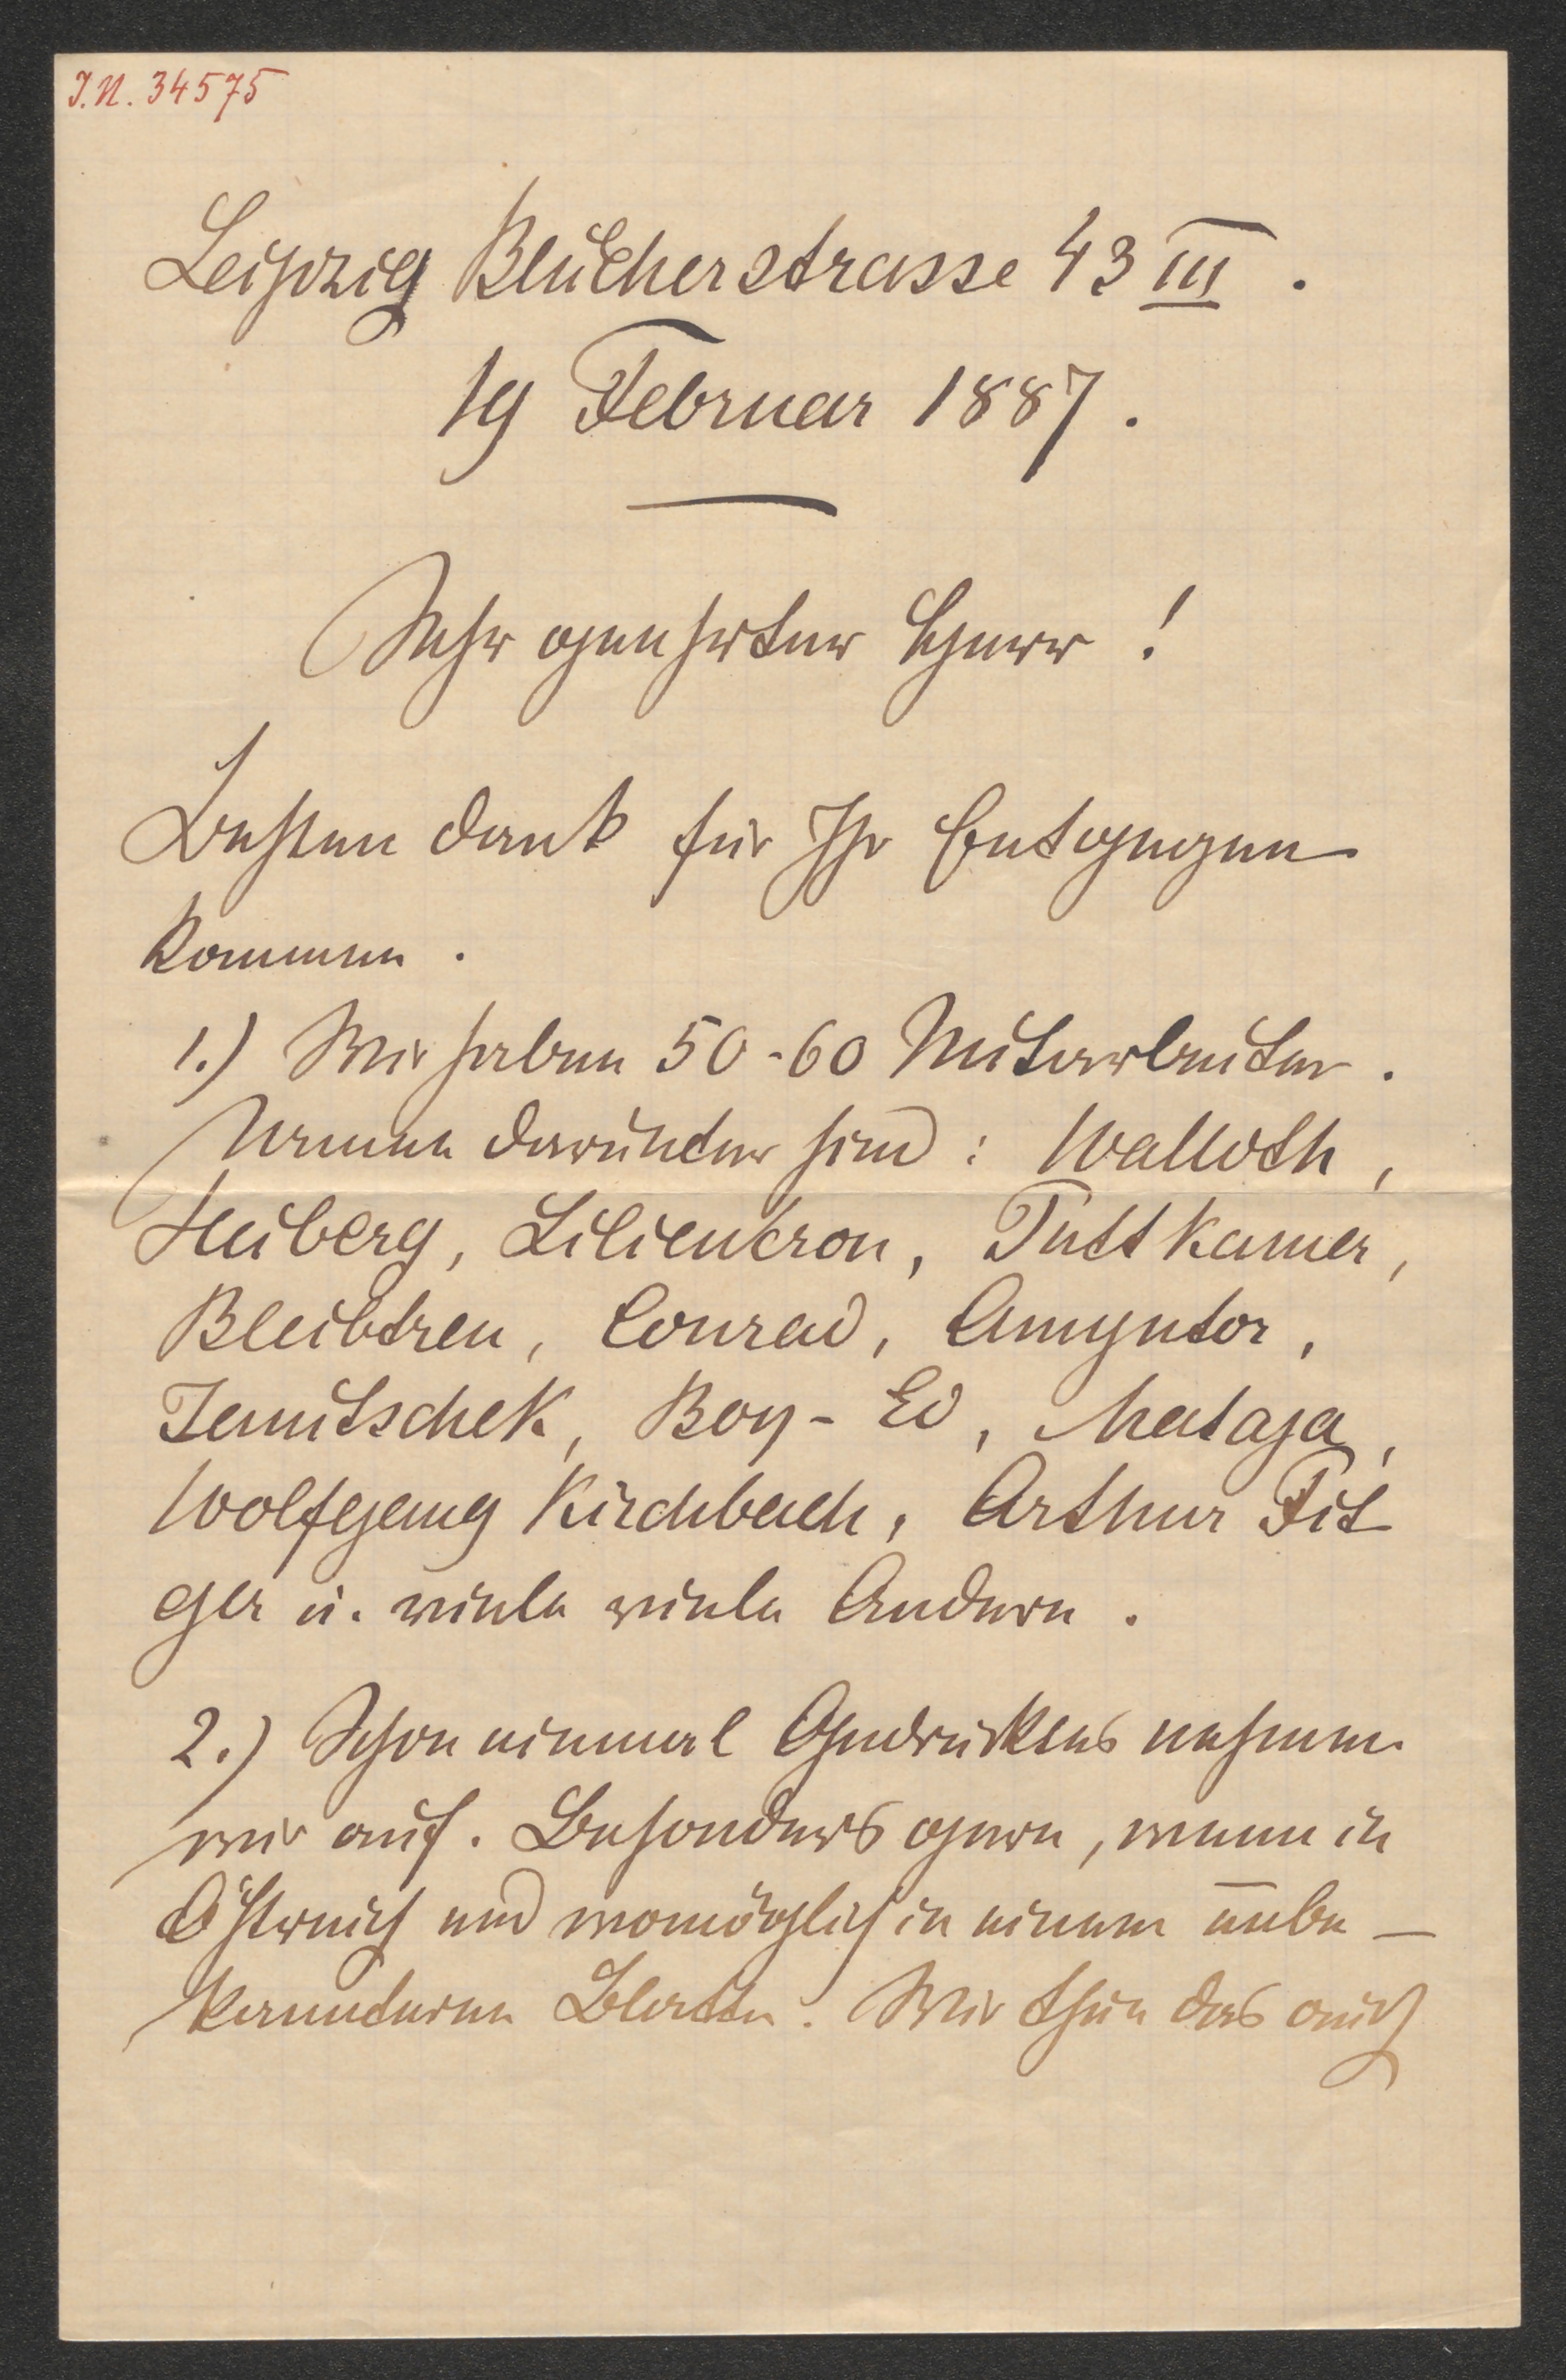 J.N. 34575
Leipzig Blücherstrasse 43 III.
19 Februar 1887.
Sehr geehrter Herr!
Besten Dank für Ihr Entgegen
kommen.
1.) Wir haben 50-60 Mitarbeiter.
Namen darunter sind: Walloth,
Heiberg, Liliencron, Puttkamer,
Bleibtreu, Conrad, Amyntor,
Janitschek, Boy-Ed, Mataja,
Wolfgang Kirchbach, Arthur Fit
ger u. viele viele Andere.
2.) Schon einmal Gedrucktes nehmen
wir auf. Besonders gern, wenn in
Östreich und womöglich in einem unbe-
kannteren Blatte. Wir thun das auch